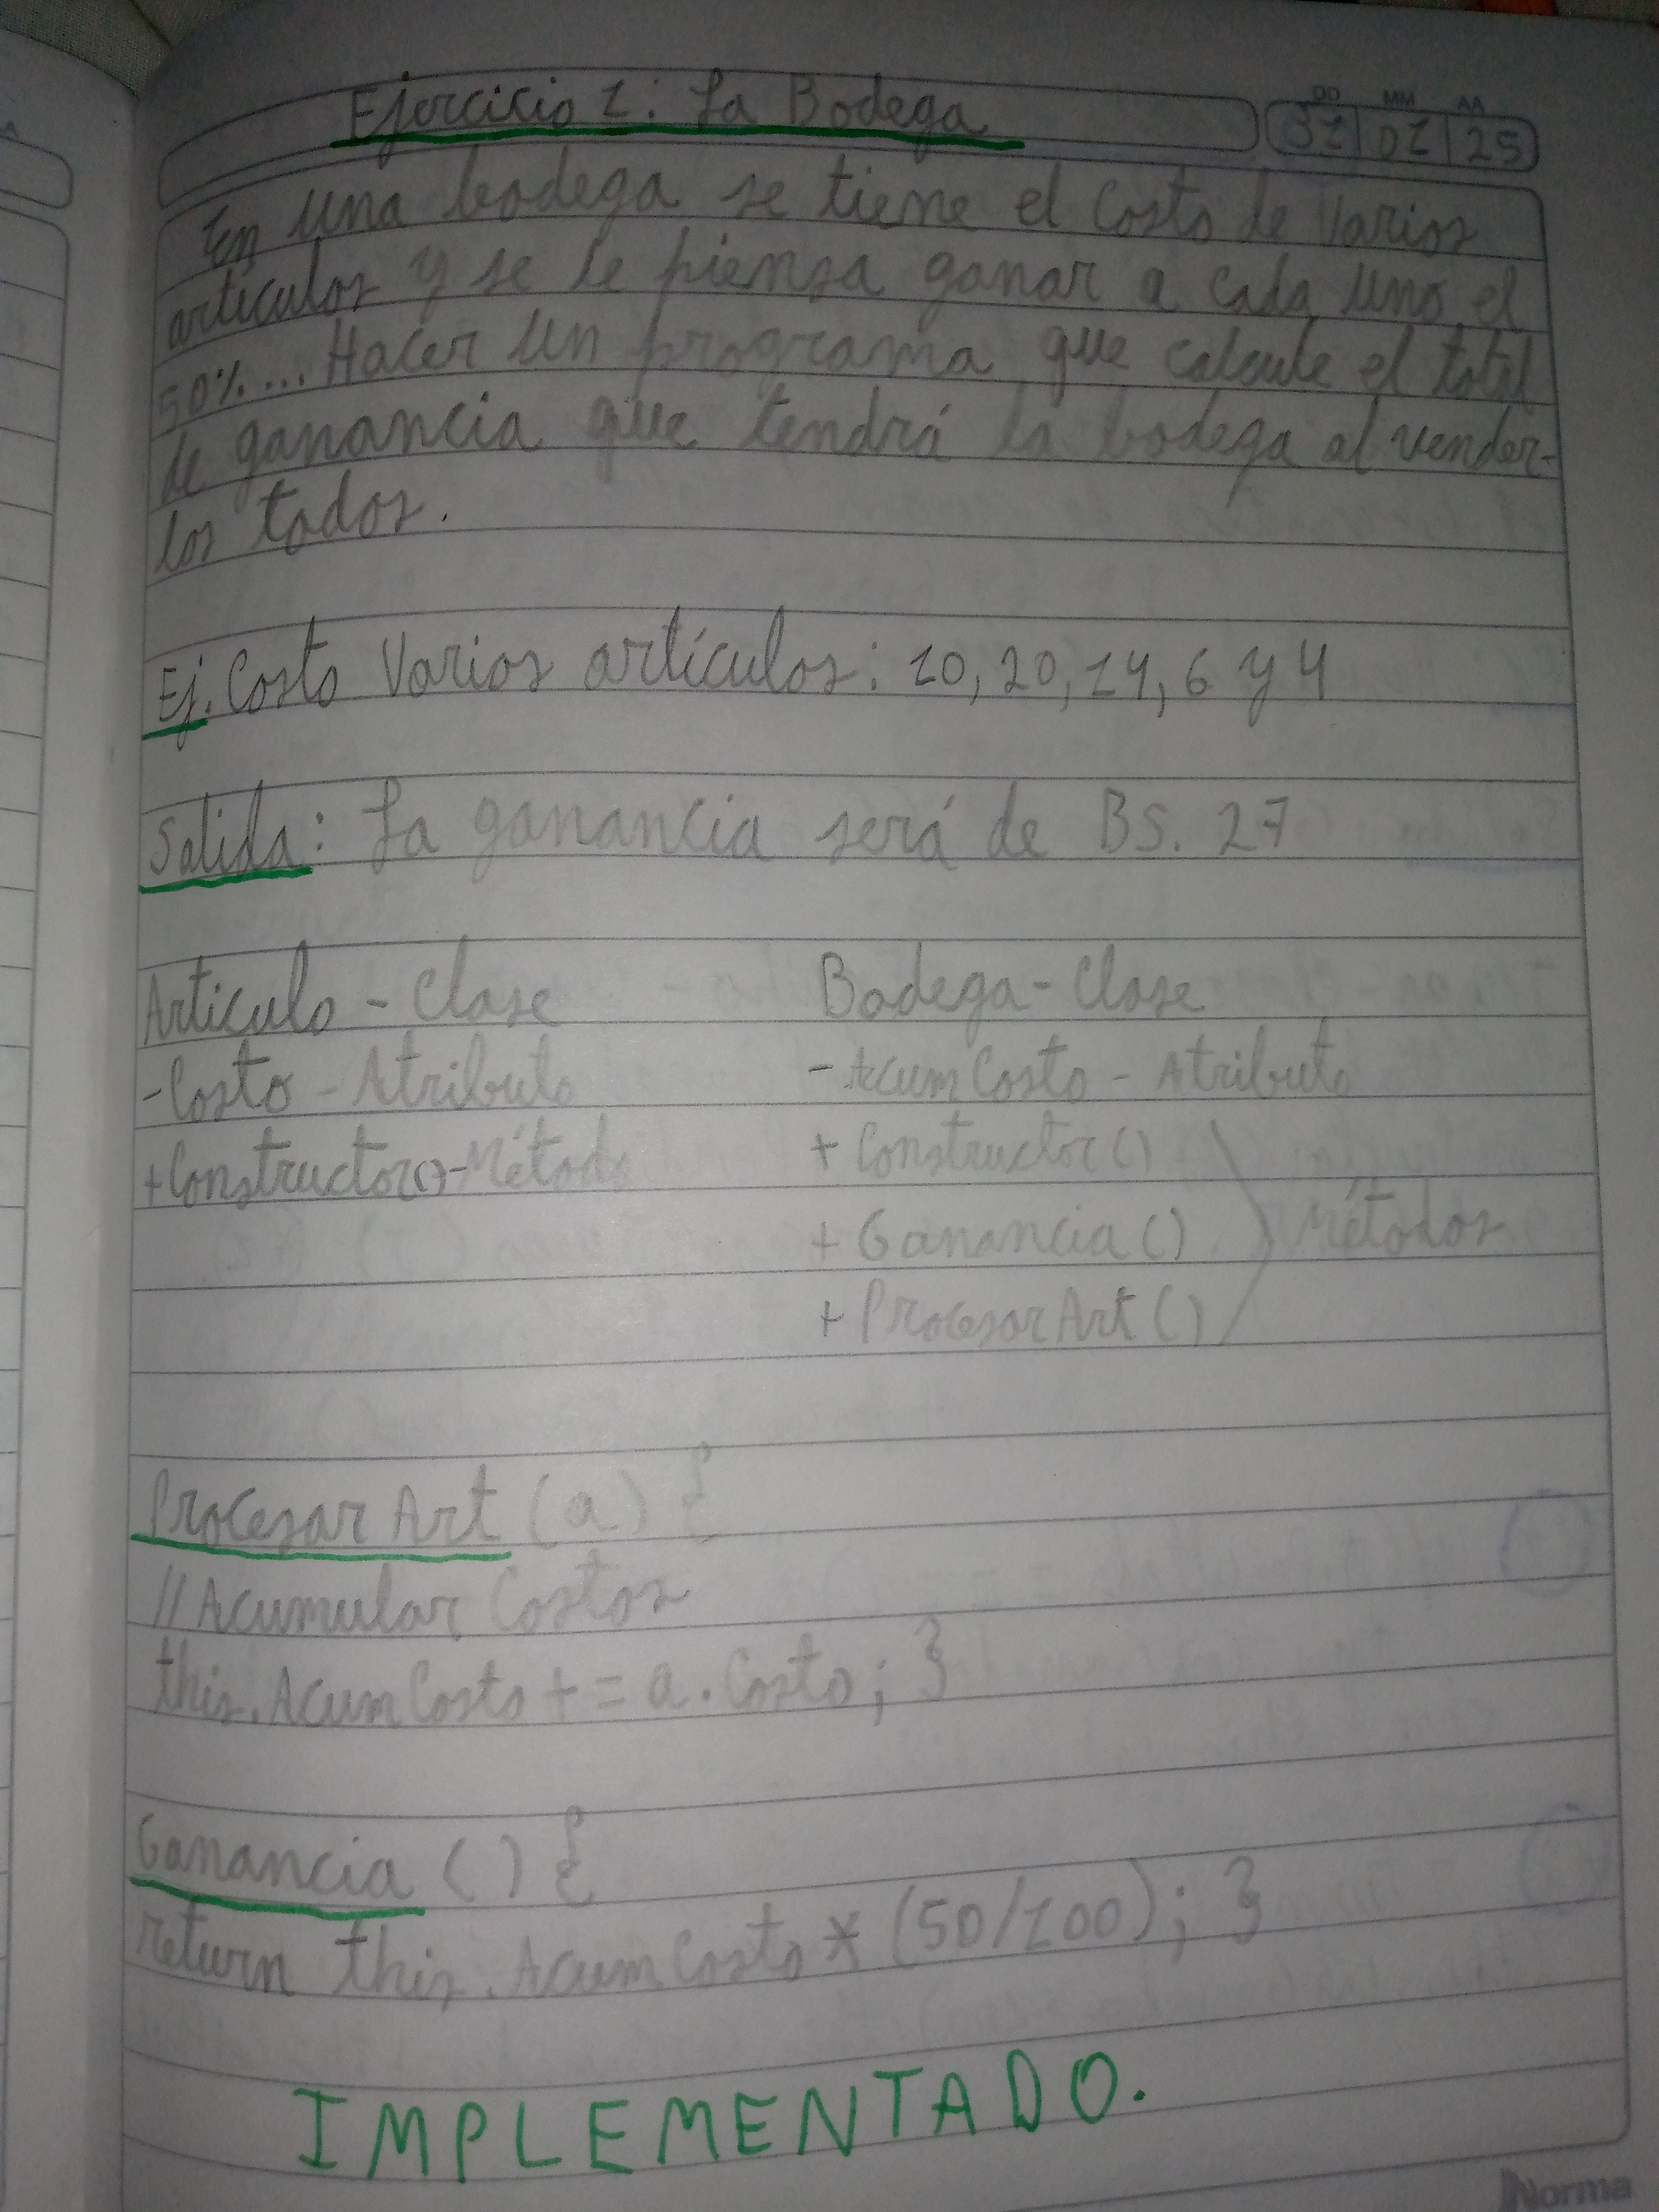 Ejercicio 1: La Bodega
DD MM AA
31 01 25
En una bodega se tiene el costo de varios
artículos y se le piensa ganar a cada uno el
50%... Hacer un programa que calcule el total
de ganancia que tendrá la bodega al vender-
los todos.
Ej. Costo Varios artículos: 10, 20, 14, 6 y 4
Salida: La ganancia será de BS. 27
Articulo - Clase
Bodega - Clase
- Costo - Atributo
- AcumCosto - Atributo
+ Constructor() - Método
+ Constructor()
+ Ganancia()
Métodos
+ ProcesarArt()
Procesar Art (a) {
//Acumular Costos
this.AcumCosto += a.Costo; }
Ganancia () {
return this.AcumCosto * (50/100); }
IMPLEMENTADO.
Norma